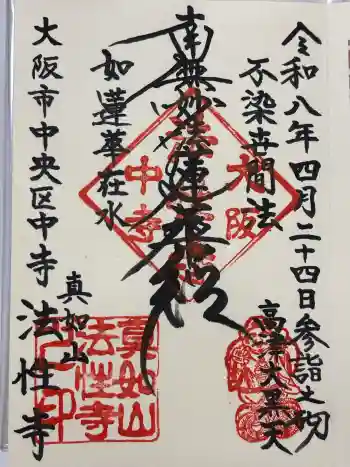 令和八年四月二十四日参詣之砌
不染世間法
高津大黒天
南無妙法蓮華経
如蓮華在水
真如山
大阪市中央区中寺 法性寺
大阪
中寺
真如山
法性寺